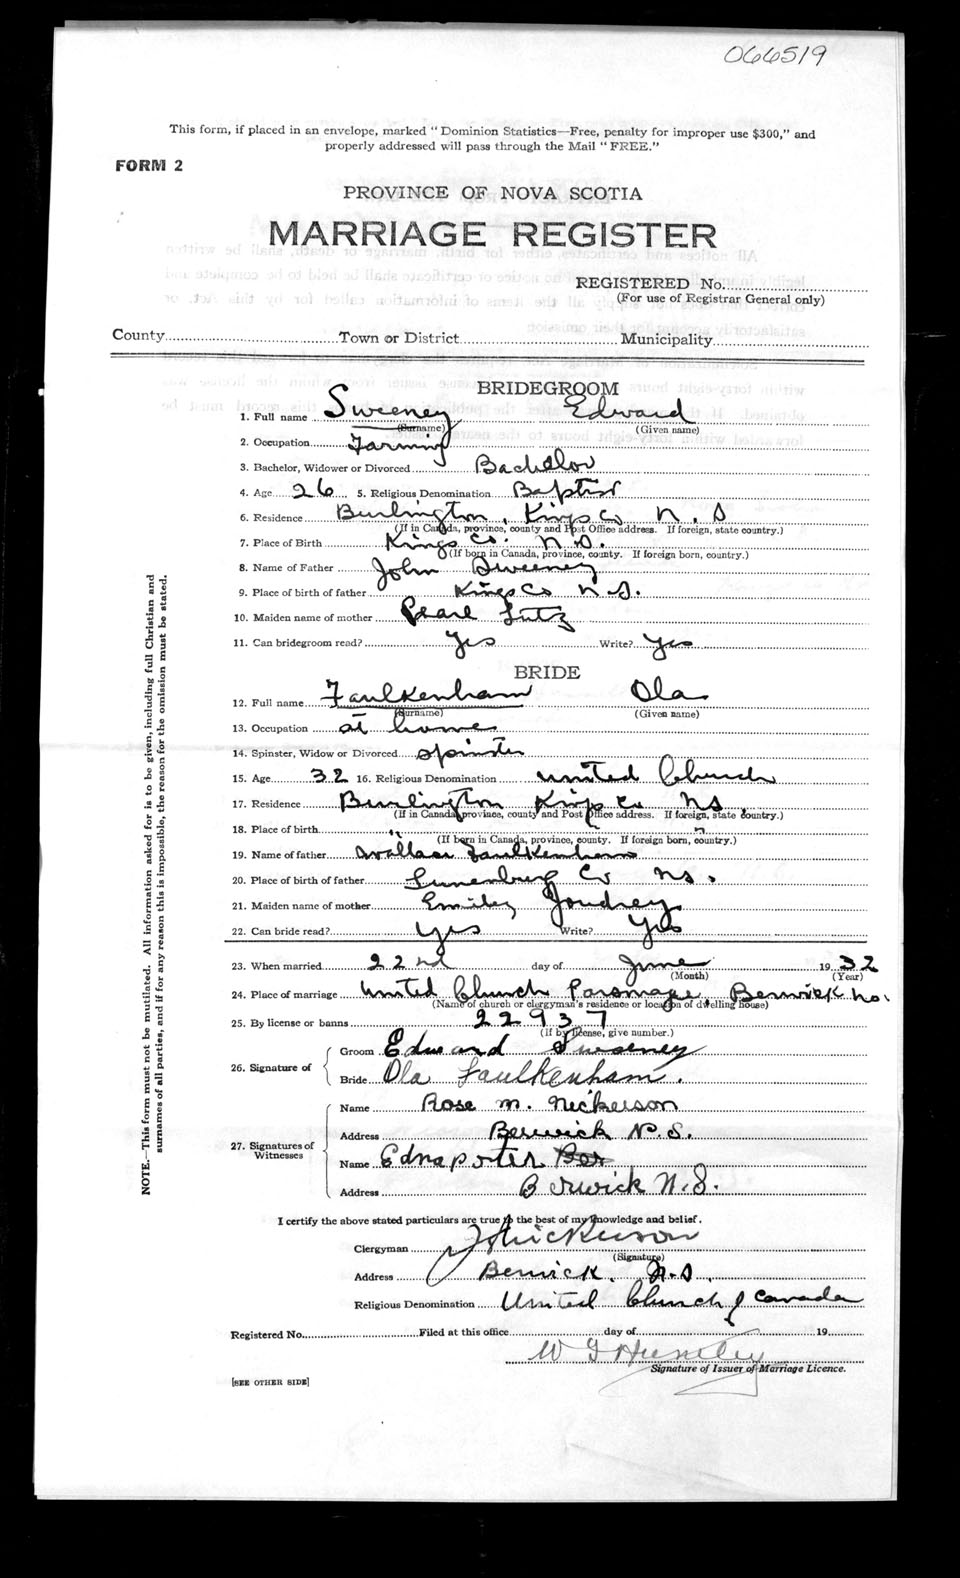 066519
This form, if placed in an envelope, marked "Dominion Statistics—Free, penalty for improper use $300," and
properly addressed will pass through the Mail "FREE."
FORM 2
PROVINCE OF NOVA SCOTIA
MARRIAGE REGISTER
REGISTERED No.
(For use of Registrar General only)
County Town or District Municipality
BRIDEGROOM
1. Full name Sweeney Edward
(Surname) (Given name)
2. Occupation Farming
3. Bachelor, Widower or Divorced Bachelor
4. Age 26 5. Religious Denomination Baptist
6. Residence Burlington, Kings Co N. S
(If in Canada, province, county and Post Office address. If foreign, state country.)
7. Place of Birth Kings Co. N.S.
(If born in Canada, province, county. If foreign born, country.)
8. Name of Father John Sweeney
9. Place of birth of father Kings Co N S.
10. Maiden name of mother Pearl Lutz
11. Can bridegroom read? Yes Write? Yes
BRIDE
12. Full name Faulkenham Ola
(Surname) (Given name)
13. Occupation at home
14. Spinster, Widow or Divorced spinster
15. Age 32 16. Religious Denomination United Church
17. Residence Burlington Kings Co NS.
(If in Canada, province, county and Post Office address. If foreign, state country.)
18. Place of birth " " "
(If born in Canada, province, county. If foreign born, country.)
19. Name of father Wallace Faulkenham
20. Place of birth of father Lunenburg Co NS.
21. Maiden name of mother Emiley Joudrey
22. Can bride read? Yes Write? Yes
23. When married 22nd day of June 1932
(Month) (Year)
24. Place of marriage United Church Parsonage, Berwick NS.
(Name of church or clergyman's residence or location of dwelling house)
25. By license or banns 22937
(If by license, give number.)
26. Signature of Groom Edward Sweeney
Bride Ola Faulkenham.
27. Signatures of Witnesses Name Rose M. Nickerson
Address Berwick N.S.
Name Edna porter Ber
Address Berwick N.S.
I certify the above stated particulars are true to the best of my knowledge and belief.
Clergyman Nickerson
(Signature)
Address Berwick. N.S.
Religious Denomination United Church of Canada
Registered No. Filed at this office day of 19
W G Huntley
Signature of Issuer of Marriage Licence.
[SEE OTHER SIDE]
NOTE.—This form must not be mutilated. All information asked for is to be given, including full Christian and
surnames of all parties, and if for any reason this is impossible, the reason for the omission must be stated.